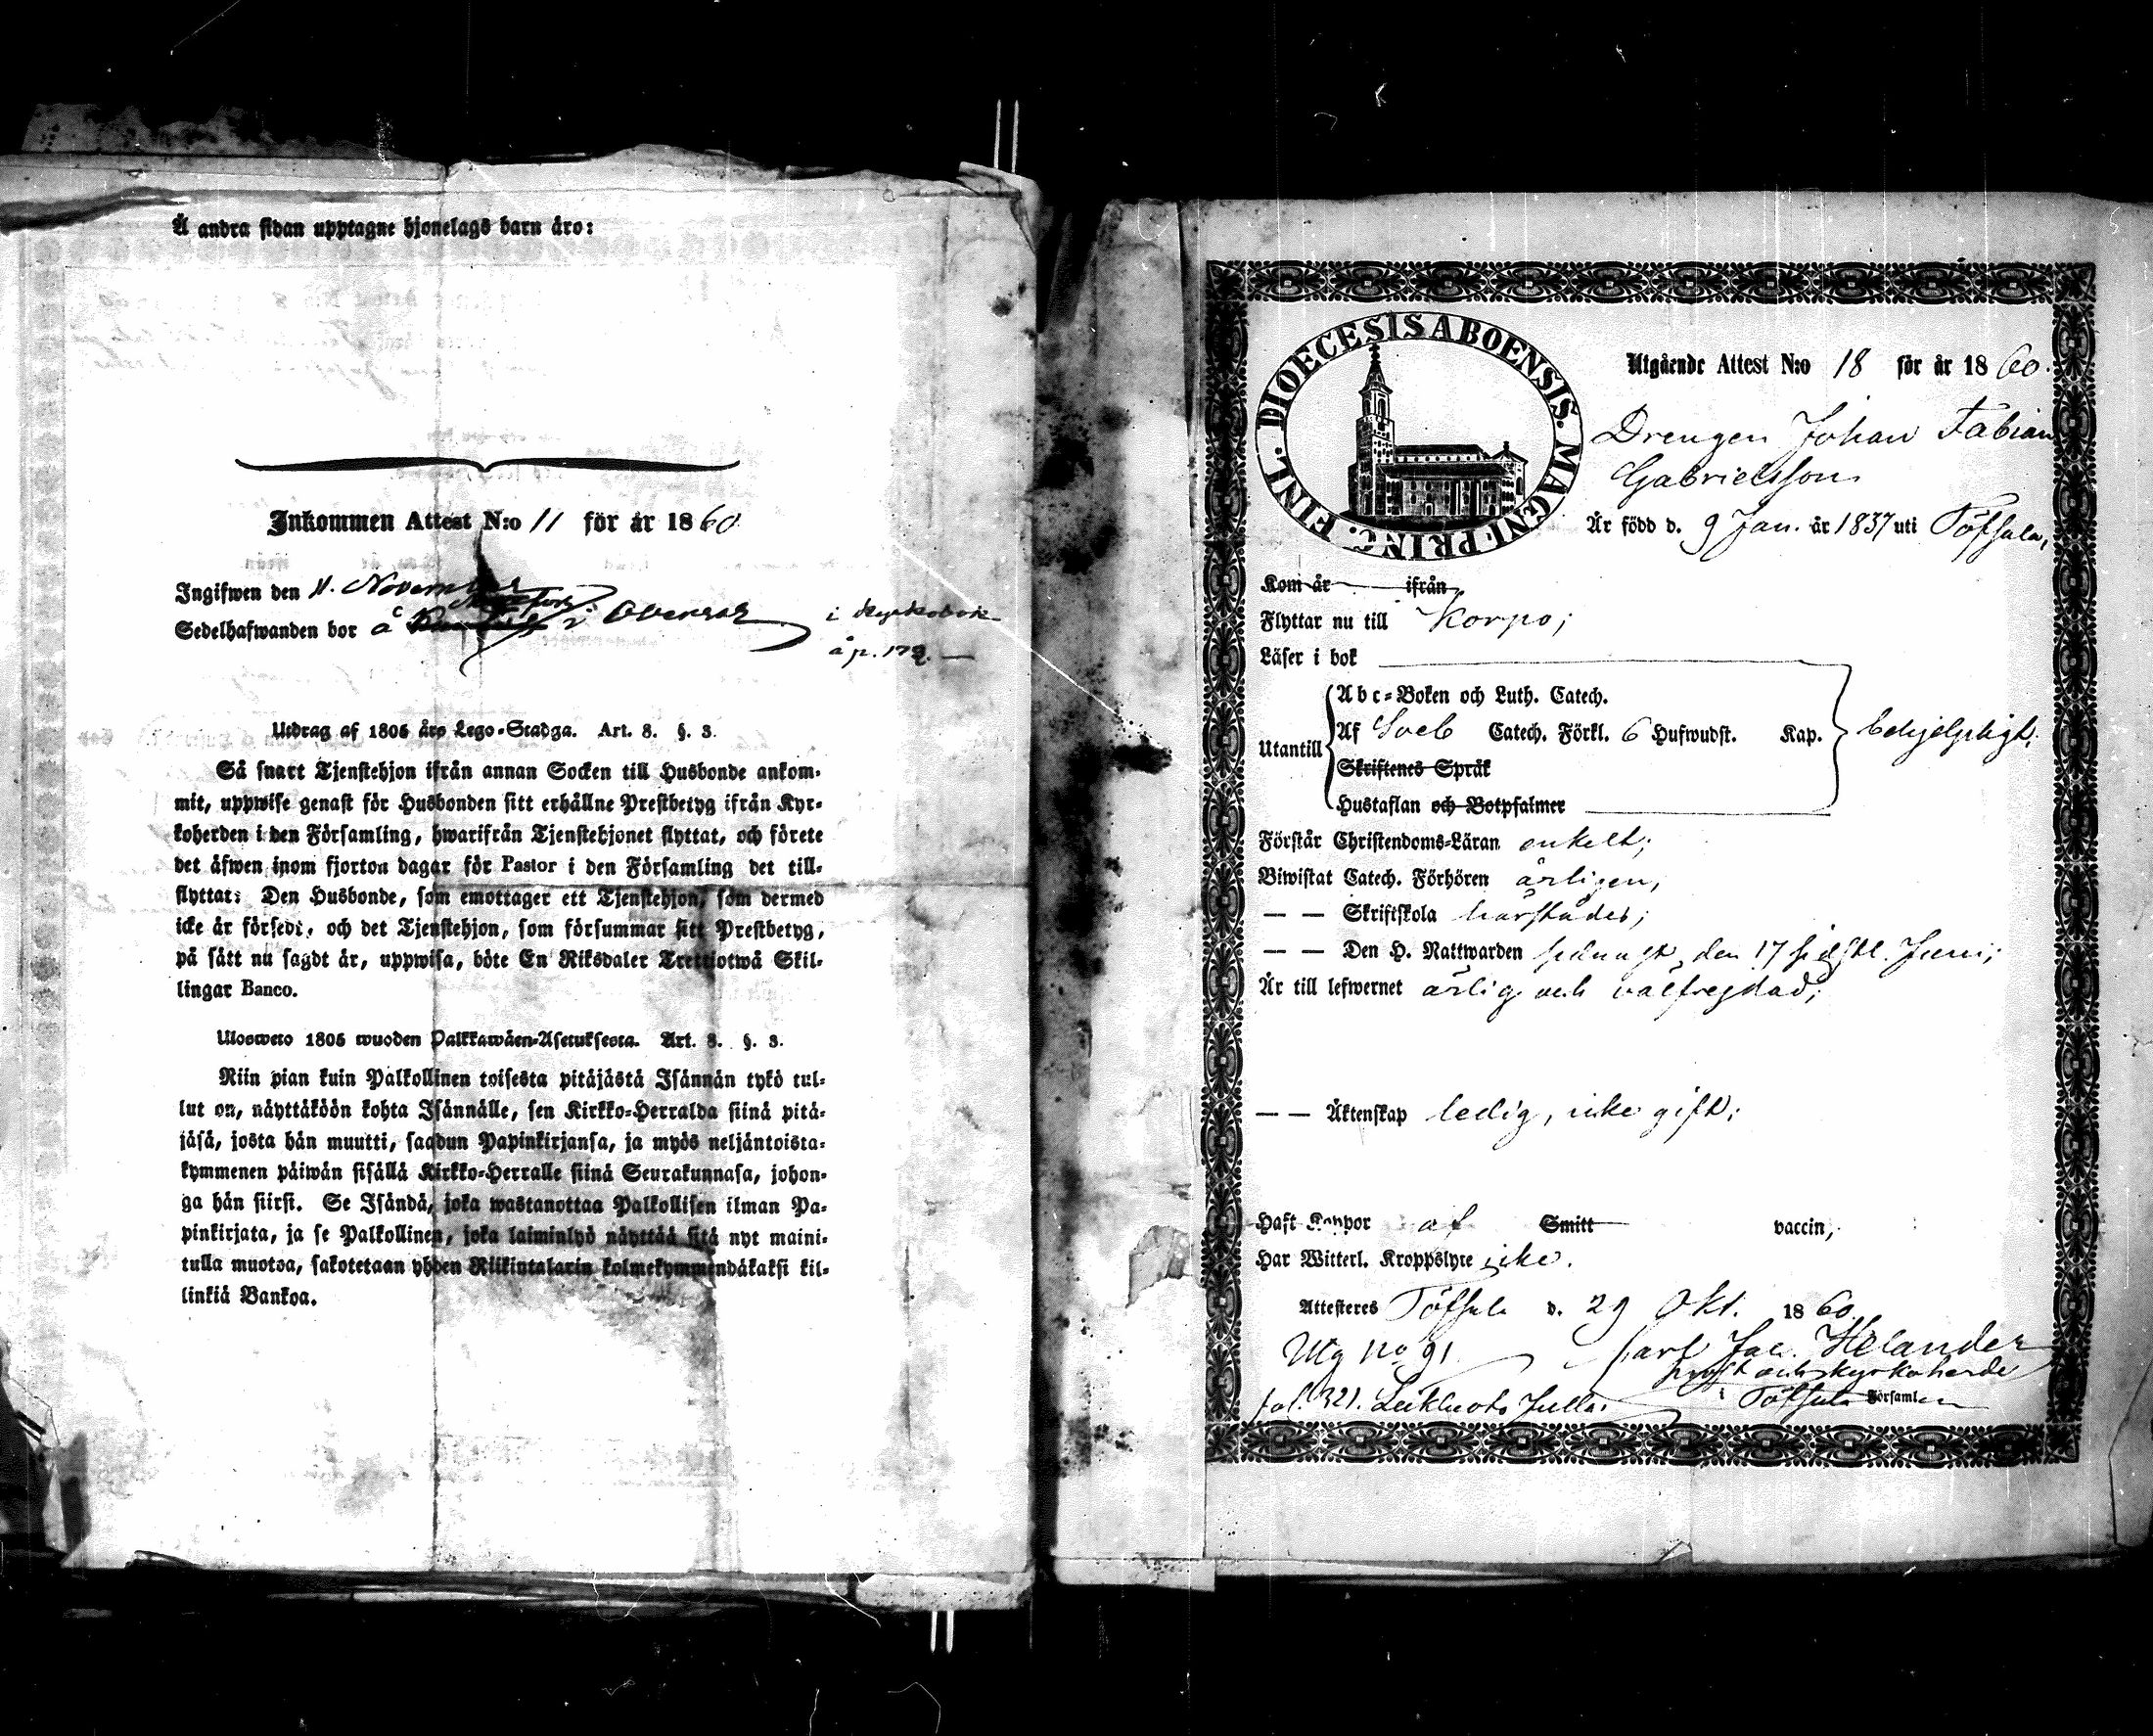 Å andra sidan upptagne hjonelags barn äro:
Inkommen Attest N:o 11 för år 1860
Ingifwen den 11. November
Sedelhafwanden bor å i kyrkobok
å p. 179.
Utdrag af 1805 års Lego-Stadga. Art. 8. §. 3.
Så snart Tjenstehjon ifrån annan Socken till Husbonde ankom-
mit, uppwise genast för Husbonden sitt erhållne Prestbetyg ifrån Kyr-
koherden i den Församling, hwarifrån Tjenstehjonet flyttat, och förete
det äfwen inom fjorton dagar för Pastor i den Församling det till-
flyttat: Den Husbonde, som emottager ett Tjenstehjon, som dermed
icke är försedt, och det Tjenstehjon, som försummar sitt Prestbetyg,
på sätt nu sagdt är, uppwisa, böte En Riksdaler Trettiotwå Skil-
lingar Banco.
Ulosweto 1805 wuoden Palkkawäen-Asetuksesta. Art. 8. §. 3.
Niin pian kuin Palkollinen toisesta pitäjästä Isännän tykö tul-
lut on, näyttäköön kohta Isännälle, sen Kirkko-Herralda siinä pitä-
jäsä, josta hän muutti, saadun Papinkirjansa, ja myös neljäntoista-
kymmenen päiwän sisällä Kirkko-Herralle siinä Seurakunnasa, johon-
ga hän siirsi. Se Isändä, joka wastanottaa Palkollisen ilman Pa-
pinkirjata, ja se Palkollinen, joka laiminlyö näyttää sitä nyt maini-
tulla muotoa, sakotetaan yhden Riikintalarin kolmekymmendäkaksi kil-
linkiä Bankoa.
DIOECESIS ABOENSIS. MAGNI PRINC. FINL.
Utgående Attest N:o 18 för år 1860.
Drengen Johan Fabian
Gabrielsson
Är född d. 9 Jan. år 1837 uti Töfsala,
Kom år ifrån
Flyttar nu till Korpo;
Läser i bok
Abc-Boken och Luth. Catech.
Utantill Af Sveb Catech. Förkl. 6 Hufwudst. Kap. behjelpligt;
Skriftenes Språk
Hustaflan och Botpsalmer
Förstår Christendoms-Läran enkelt;
Biwistat Catech. Förhören årligen,
— — Skriftskola härstädes;
— — Den H. Nattwarden sednast den 17 sidstl. Juni;
Är till lefwernet ärlig och välfrejdad;
— — Äktenskap ledig, icke gift;
Haft Koppor af Smitt vaccin,
Har Witterl. Kroppslyte icke.
Attesteres Töfsala d. 29 Okt. 1860
Utg no 91. Carl Jac. Helander
prost och kyrkoherde
fol. 321. i Töfsala Församl